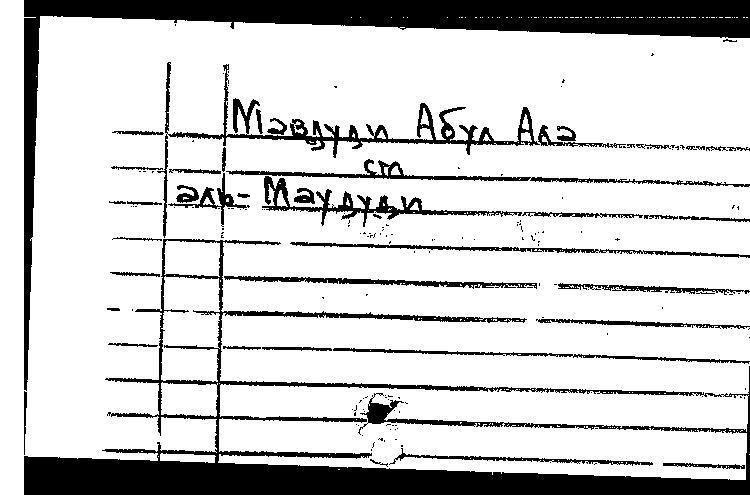 Мавдуди Абул Ала
см
аль-Маудуди